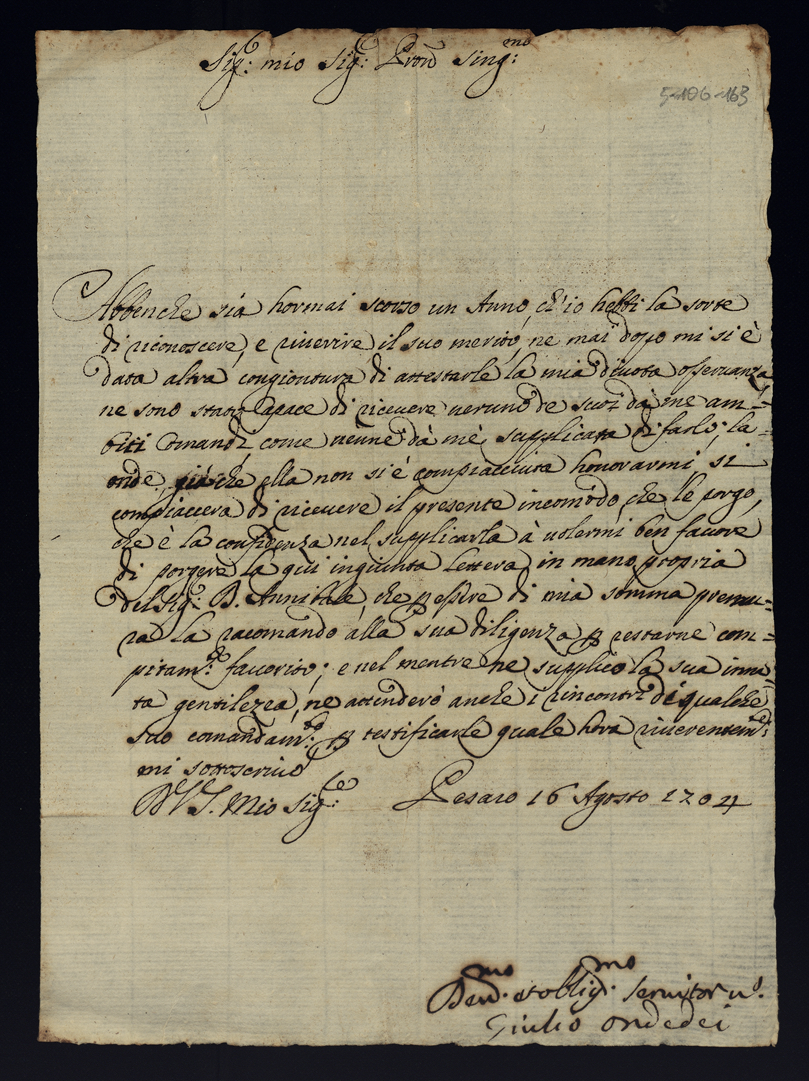 Sig:re mio Sig:re Pron Sing:mo
5-106-163
Abbenche sia hormai scorso un Anno, ch'io hebbi la sorte
di riconoscere, e riuerire il suo merito, ne mai dopo mi si è
data altra congiontura di attestarle la mia diuota osseruanza
ne sono stato capace di riceuere ueruno de suoi da me am=
biti comandi, come uenne da me supplicata di farlo; la=
onde, già che ella non si è compiacciuta honorarmi, si
compiaccera di riceuere il presente incomodo che le porgo,
che è la confidenza nel supplicarla à uolermi ben fauore
di porgere la qui ingiunta lettera in mano propria
del Sig:r D. Annibale, che p essere di mia somma premu=
ra la racomando alla sua diligenza p restarne com=
pitam:te fauorito; e nel mentre ne supplico la sua inna
ta gentilezza, ne attenderò anche i rincontri di qualche
suo comandam:to p testificarle quale hora riuerentem:te
mi sottoscriuo
D V S. Mio Sig:re Pesaro 16 Agosto 1704
Deu:mo et oblig:mo seruitor u:o
Giulio Ondedei